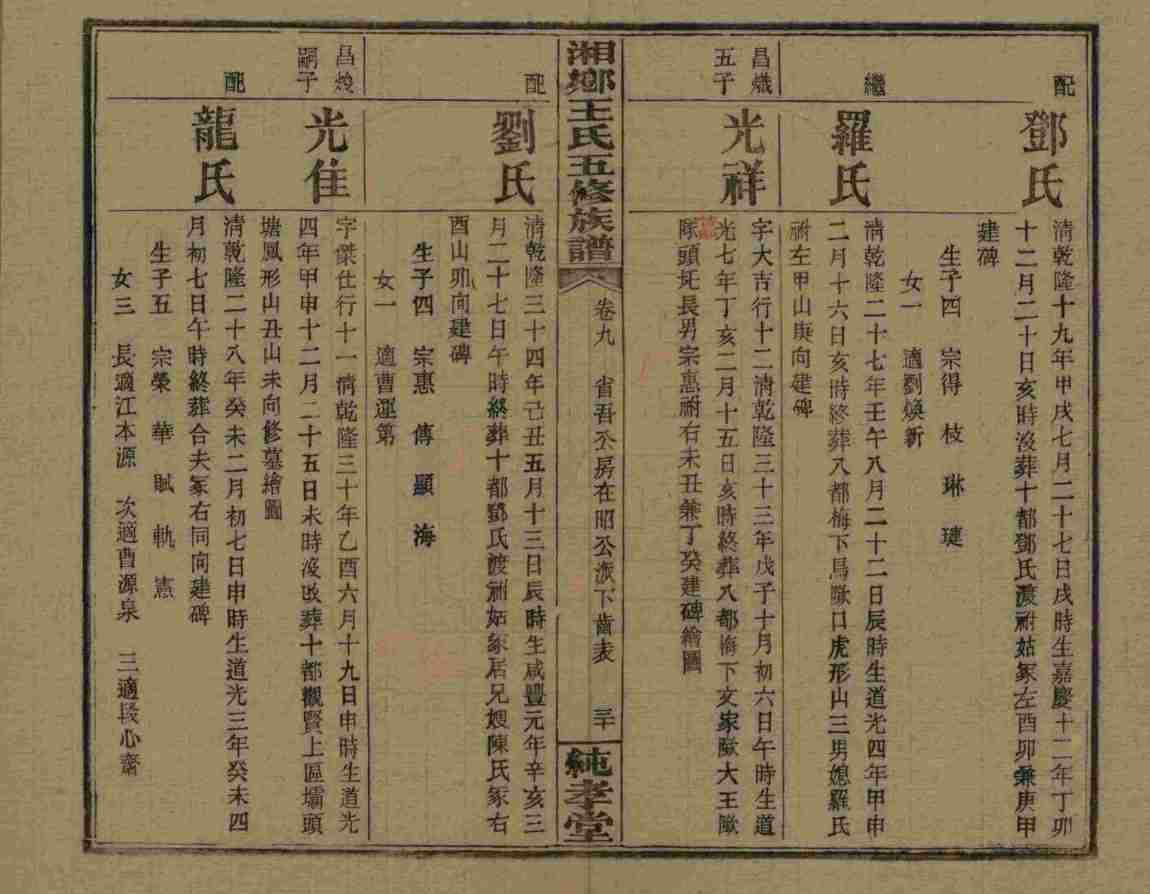 配
鄧氏
清乾隆十九年甲戌七月二十七日戌時生嘉慶十二年丁卯
十二月二十日亥時沒葬十都鄧氏渡祔姑冢左酉卯兼庚甲
建碑
生子四 宗得 枝 琳 璉
女一 適劉煥新
繼
羅氏
清乾隆二十七年壬午八月二十二日辰時生道光四年甲申
二月十六日亥時終葬八都梅下馬歇口虎形山三男媳羅氏
祔左甲山庚向建碑
昌熾
五子
光祥
字大吉行十二清乾隆三十三年戊子十月初六日午時生道
光七年丁亥二月十五日亥時終葬八都梅下文家歇大王歇
隊頭坵長男宗惠祔右未丑兼丁癸建碑繪圖
湘鄉王氏五修族譜
卷九 省吾公房在昭公派下齒表 三十
純孝堂
配
劉氏
清乾隆三十四年己丑五月十三日辰時生咸豐元年辛亥三
月二十七日午時終葬十都鄧氏渡祔姑冢居兄嫂陳氏冢右
酉山卯向建碑
生子四 宗惠 傳 顯 海
女一 適曹運第
昌
嗣子
光佳
字傑仕行十一清乾隆三十年乙酉六月十九日申時生道光
四年甲申十二月二十五日未時沒改葬十都觀賢上區壩頭
塘鳳形山丑山未向修墓繪圖
配
龍氏
清乾隆二十八年癸未二月初七日申時生道光三年癸未四
月初七日午時終葬合夫冢右同向建碑
生子五 宗榮 華 賦 軌 憲
女三 長適江本源 次適曹源泉 三適段心齋